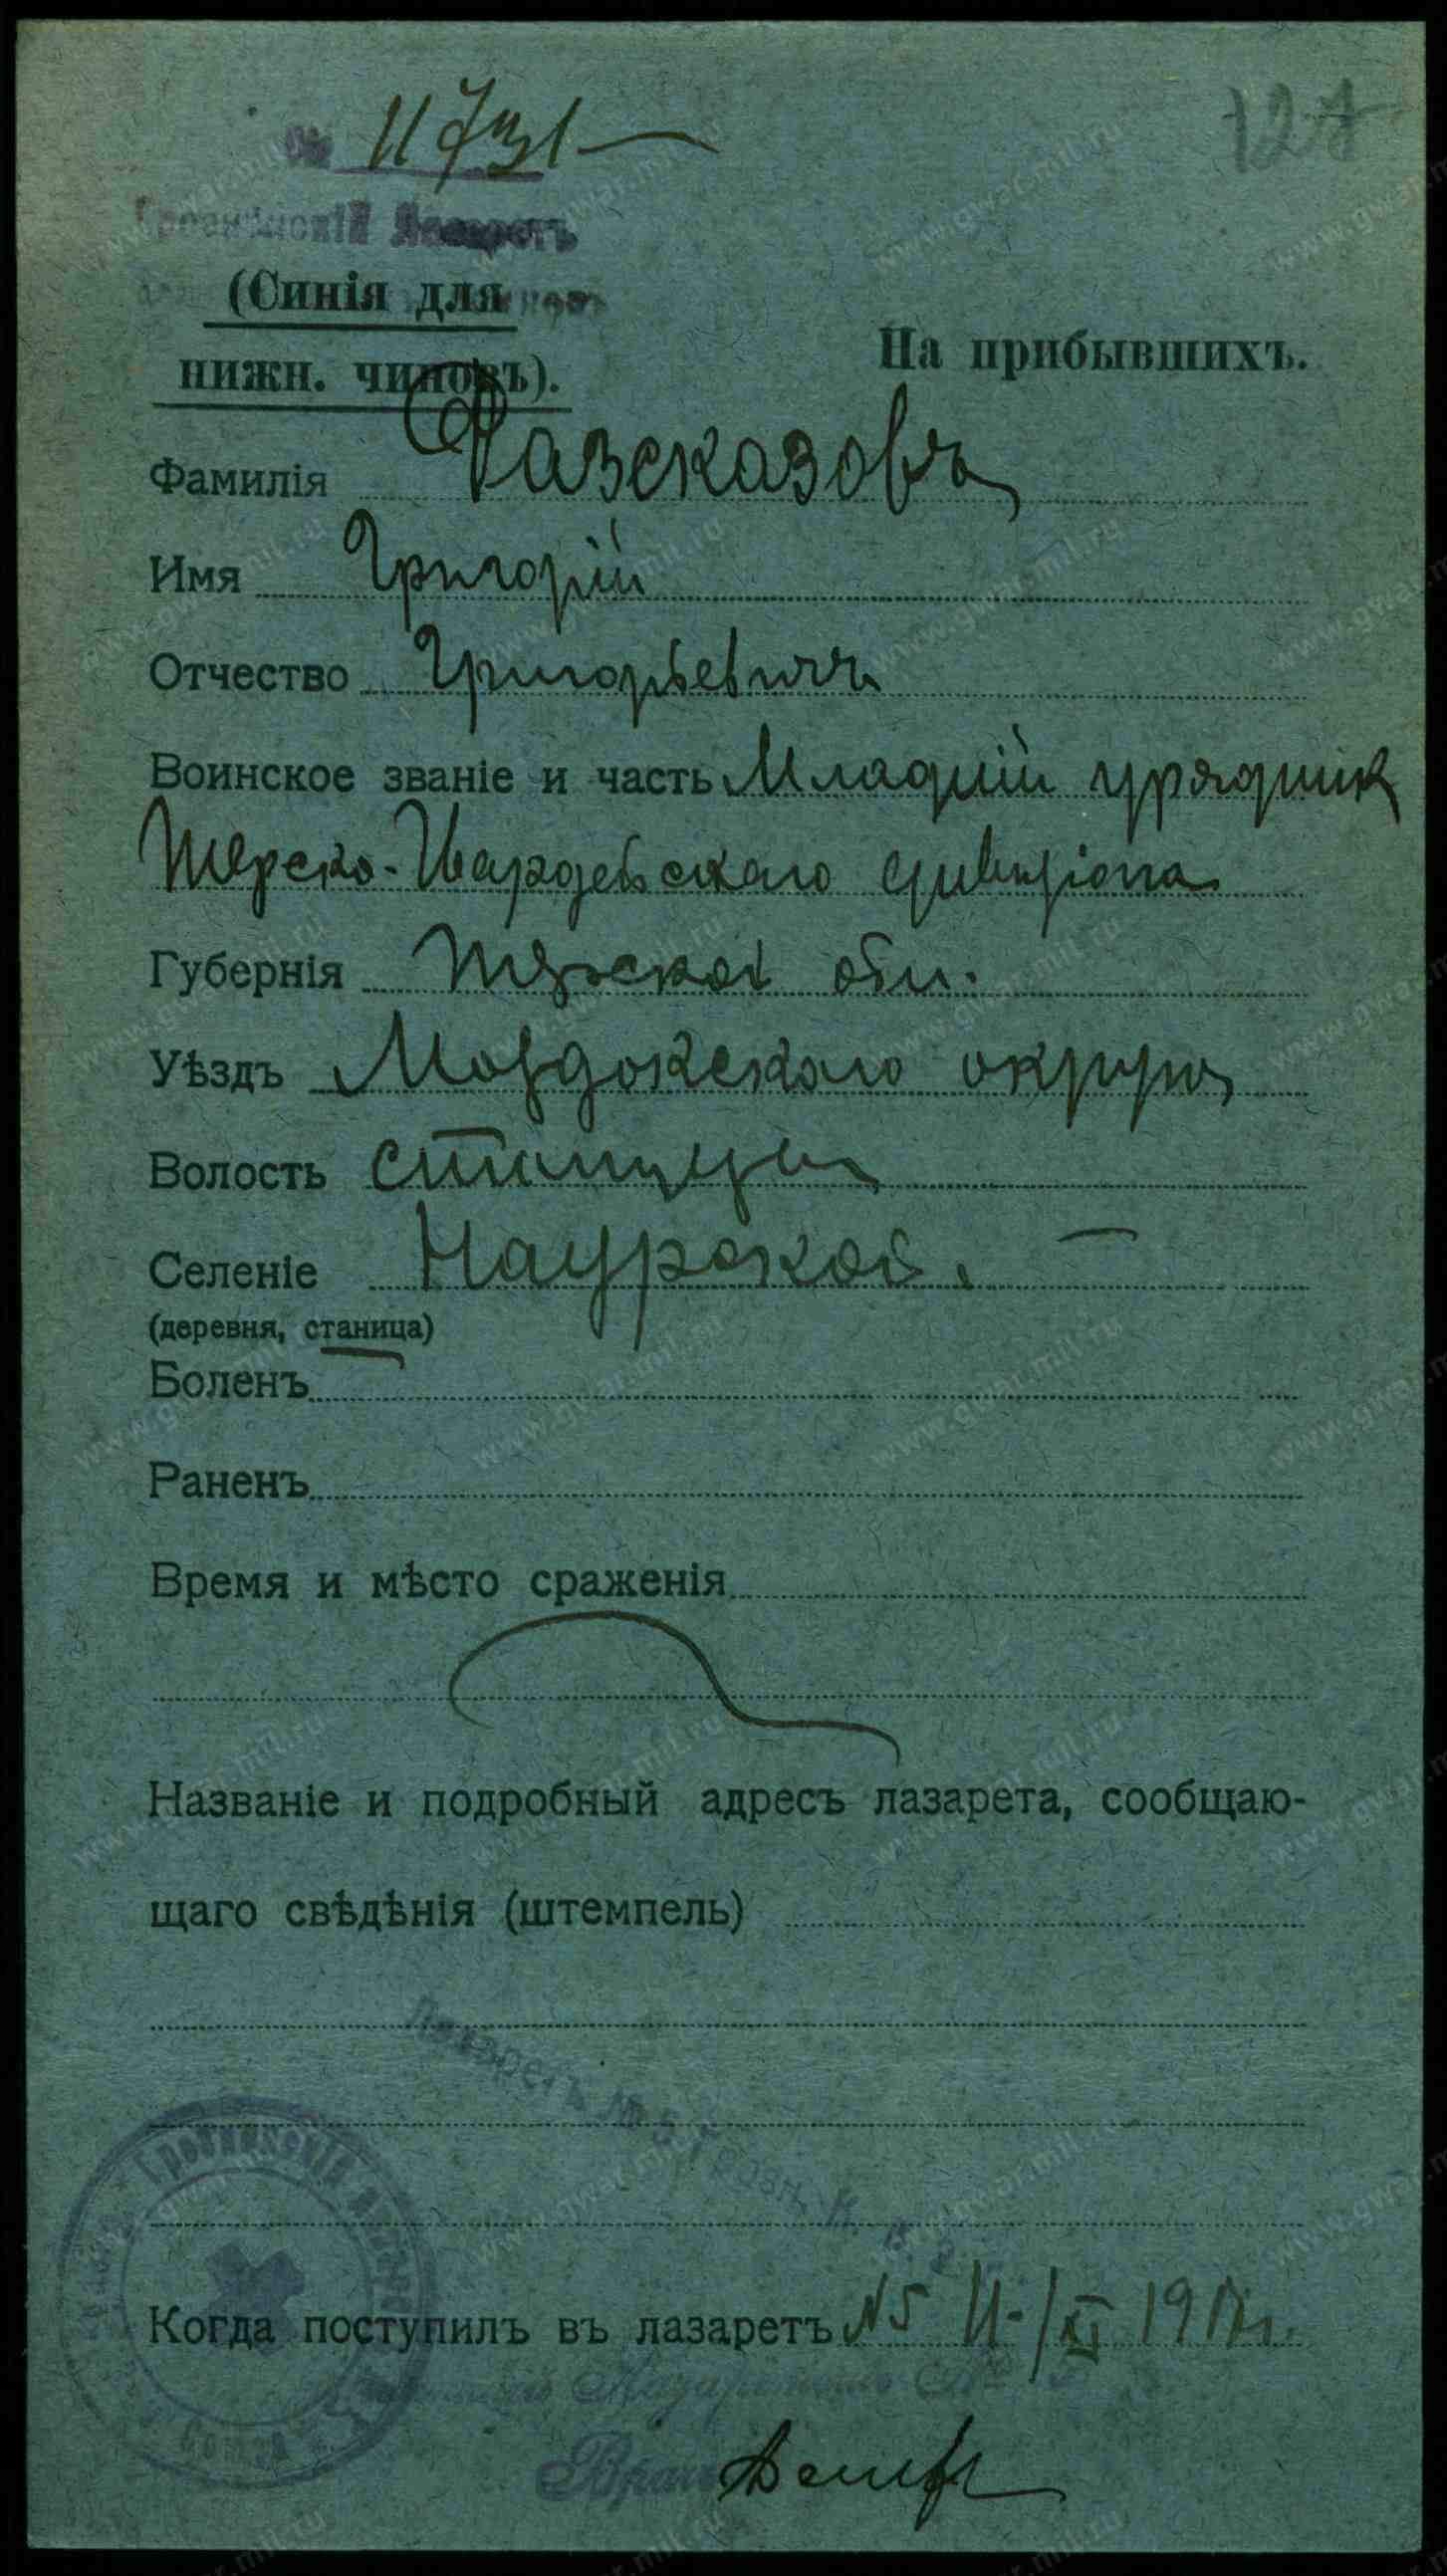 № 11731
127
Лазаретъ
(Синія для
нижн. чиновъ).
На прибывшихъ.
Фамилія Разсказовъ
Имя Григорій
Отчество Григорьевичъ
Воинское званіе и часть Младшій урядник
Терско-Гвардейскаго дивизіона
Губернія Терской обл.
Уѣздъ Моздокскаго округа
Волость станицы
Селеніе Наурской.
(деревня, станица)
Боленъ
Раненъ
Время и мѣсто сраженія
Названіе и подробный адресъ лазарета, сообщаю-
щаго свѣдѣнія (штемпель)
Лазаретъ №
Когда поступилъ въ лазаретъ №5 11/XI 1917г.
Врач
www.gwar.mil.ru